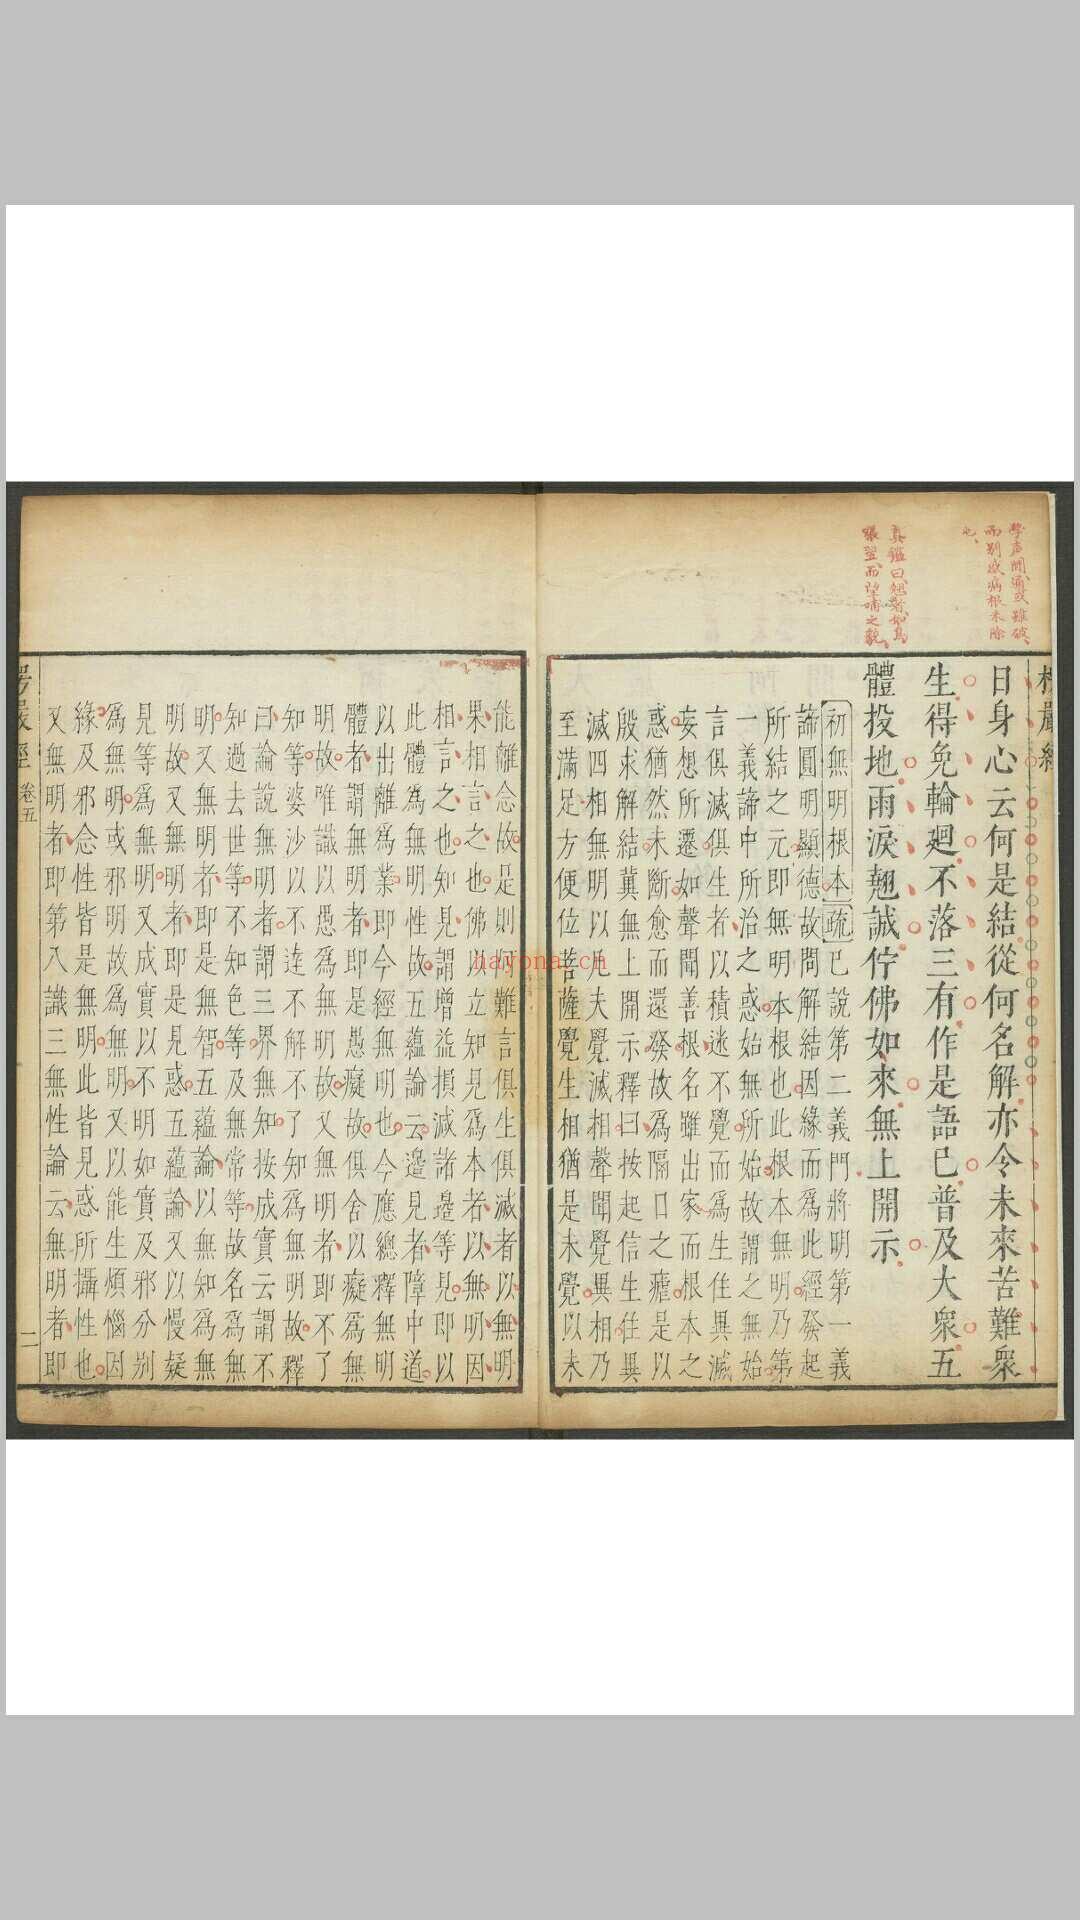 學聲聞適以雖破
而別惑病根未除
也
真鑑曰翹者如鳥
張翌而望哺之貌
日身心云何是結從何名解亦令未來苦難衆
生得免輪廻不落三有作是語已普及大衆五
體投地雨淚翹誠佇佛如來無上開示
初無明根本疏已說第二義門將明第一義
諦圓明顯德故問解結因緣而爲此經發起
所結之元即無明本根也此根本無明乃第
一義諦中所治之惑始無所始故謂之無始
言俱滅俱生者以積迷不覺而爲生住異滅
妄想所遷如聲聞善根名雖出家而根本之
惑猶然未斷愈而還發故爲隔日之瘧是以
殷求解結冀無上開示釋曰按起信生住異
滅四相無明以凡夫覺滅相聲聞覺異相乃
至滿足方便位菩薩覺生相猶是未覺以未
能離念故是則師難言俱生俱滅者以無明
果相言之也佛以立知見爲本者以無明因
相言之也知見謂增益損減諸邊等見即以
此體爲無明性故五蘊論云邊見者障中道
以出離爲業即今經無明也今應總釋無明
體者謂無明者即是愚癡故俱舍以癡爲無
明故唯識以愚爲無明故又無明者即不了
知等婆沙以不達不解不了知爲無明故釋
曰論說無明者謂三界無知按成實云謂不
知過去世等不知色等及無常等故名爲無
明又無明者即是無智五蘊論以無知爲無
明故又無明者即是見惑五蘊論又以慢疑
見等爲無明又成實以不明如實及邪分別
爲無明或邪明故爲無明又以能生煩惱因
緣及邪念性皆是無明此皆見惑所攝性也
又無明者即第八識三無性論云無明者即
楞嚴經 卷五 二
hayona.cn